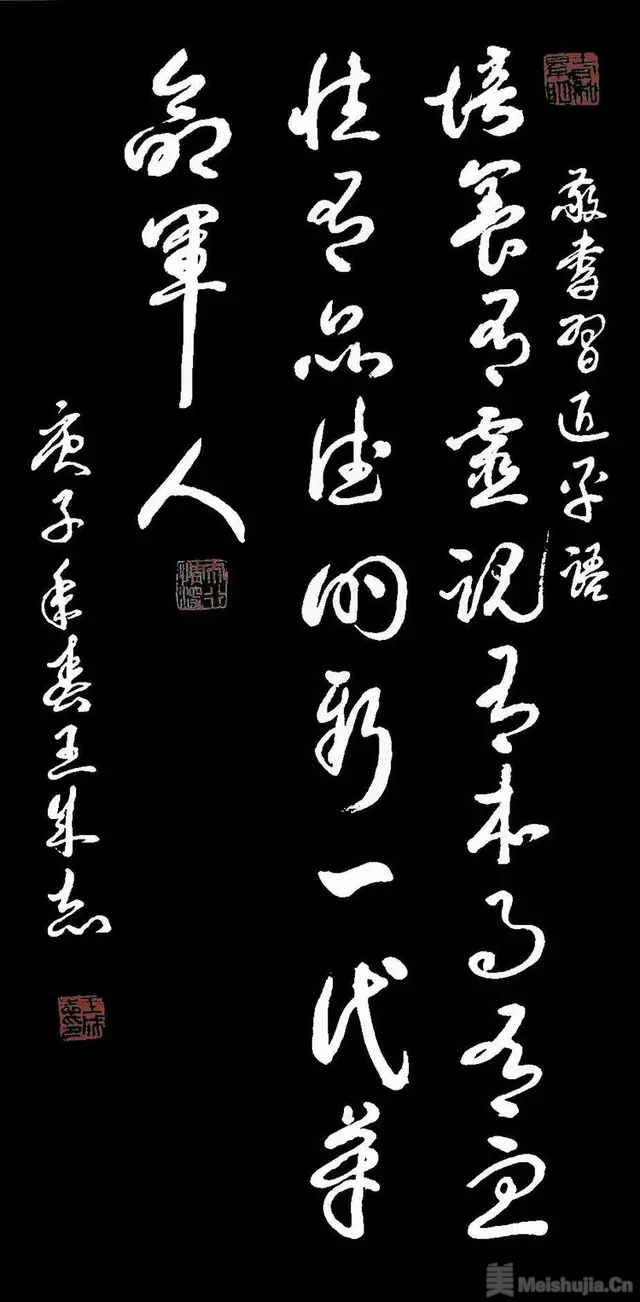 敬書習近平語
培養有靈魂有本事有血
性有品德的新一代革
命軍人
庚子年春王成志
美 Meishujia.Cn